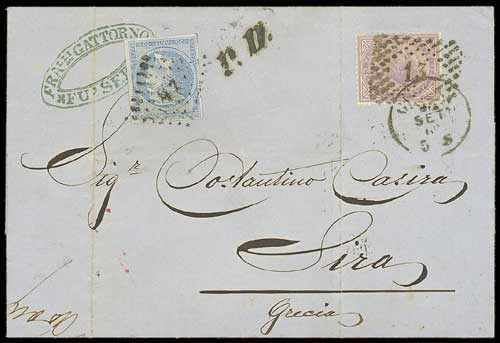 FRAtelli GATTORNO
FU' SE
P. D.
47
1
SETT
5 S
Sigr Costantino Casira
Sira
Grecia